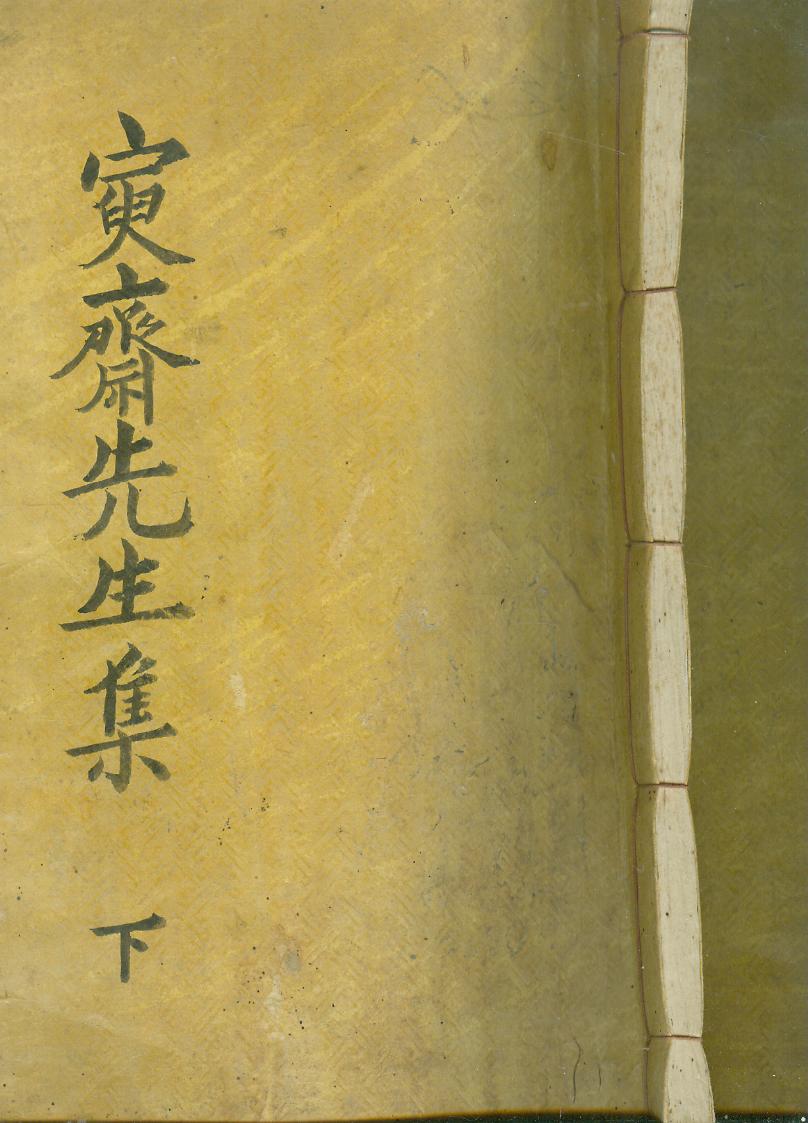 寅齋先生集 下